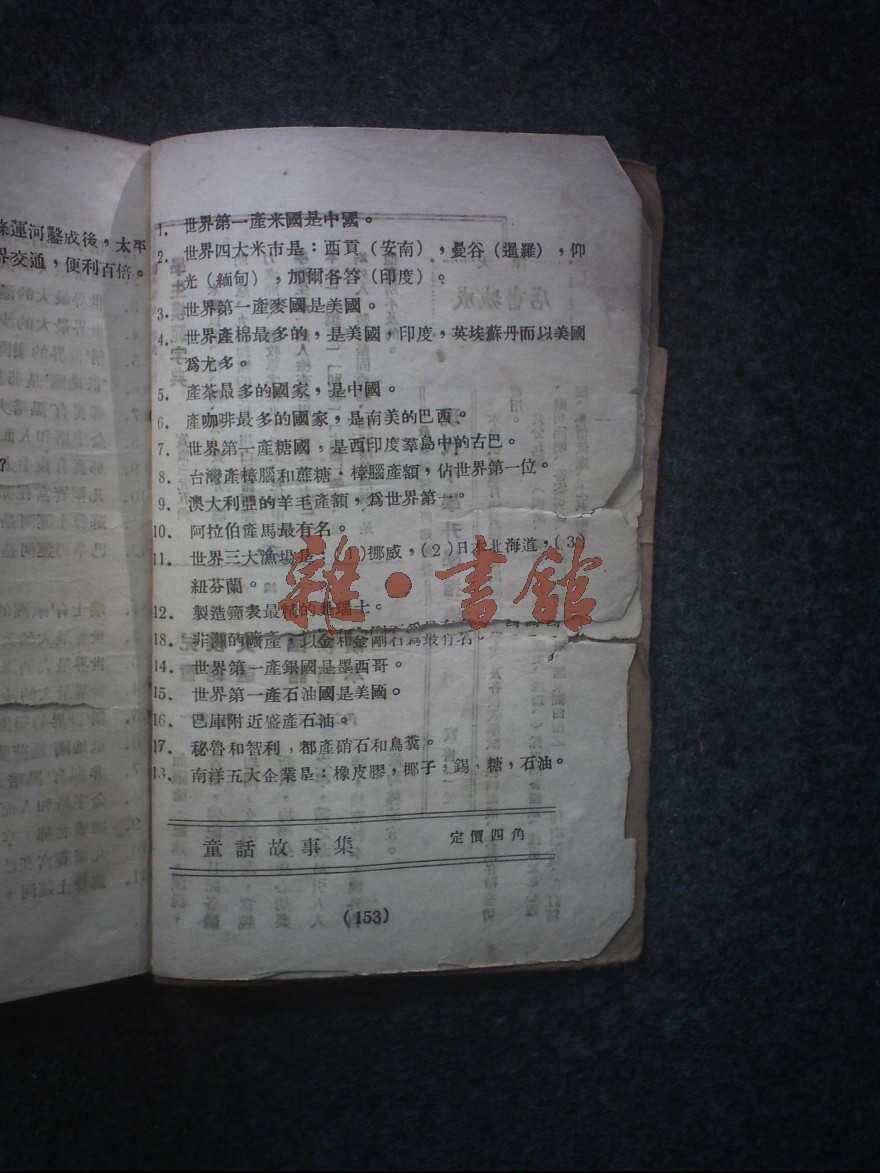 條運河鑿成後，太平
界交通，便利百倍。
?
1. 世界第一產米國是中國。
2. 世界四大米市是：西貢（安南），曼谷（暹羅），仰
光（緬甸），加爾各答（印度）。
3. 世界第一產麥國是美國。
4. 世界產棉最多的，是美國，印度，英埃蘇丹而以美國
爲尤多。
5. 產茶最多的國家，是中國。
6. 產咖啡最多的國家，是南美的巴西。
7. 世界第一產糖國，是西印度羣島中的古巴。
8. 台灣產樟腦和蔗糖，樟腦產額，佔世界第一位。
9. 澳大利亞的羊毛產額，爲世界第一。
10. 阿拉伯產馬最有名。
11. 世界三大漁場是：(1)挪威，(2)日本北海道，(3)
紐芬蘭。
12. 製造鐘表最精的是瑞士。
18. 非洲的礦產，以金和金剛石爲最有名。
14. 世界第一產銀國是墨西哥。
15. 世界第一產石油國是美國。
16. 巴庫附近盛產石油。
17. 秘魯和智利，都產硝石和鳥糞。
13. 南洋五大企業是：橡皮膠，椰子，錫，糖，石油。
童話故事集 定價四角
(153)
雜·書館